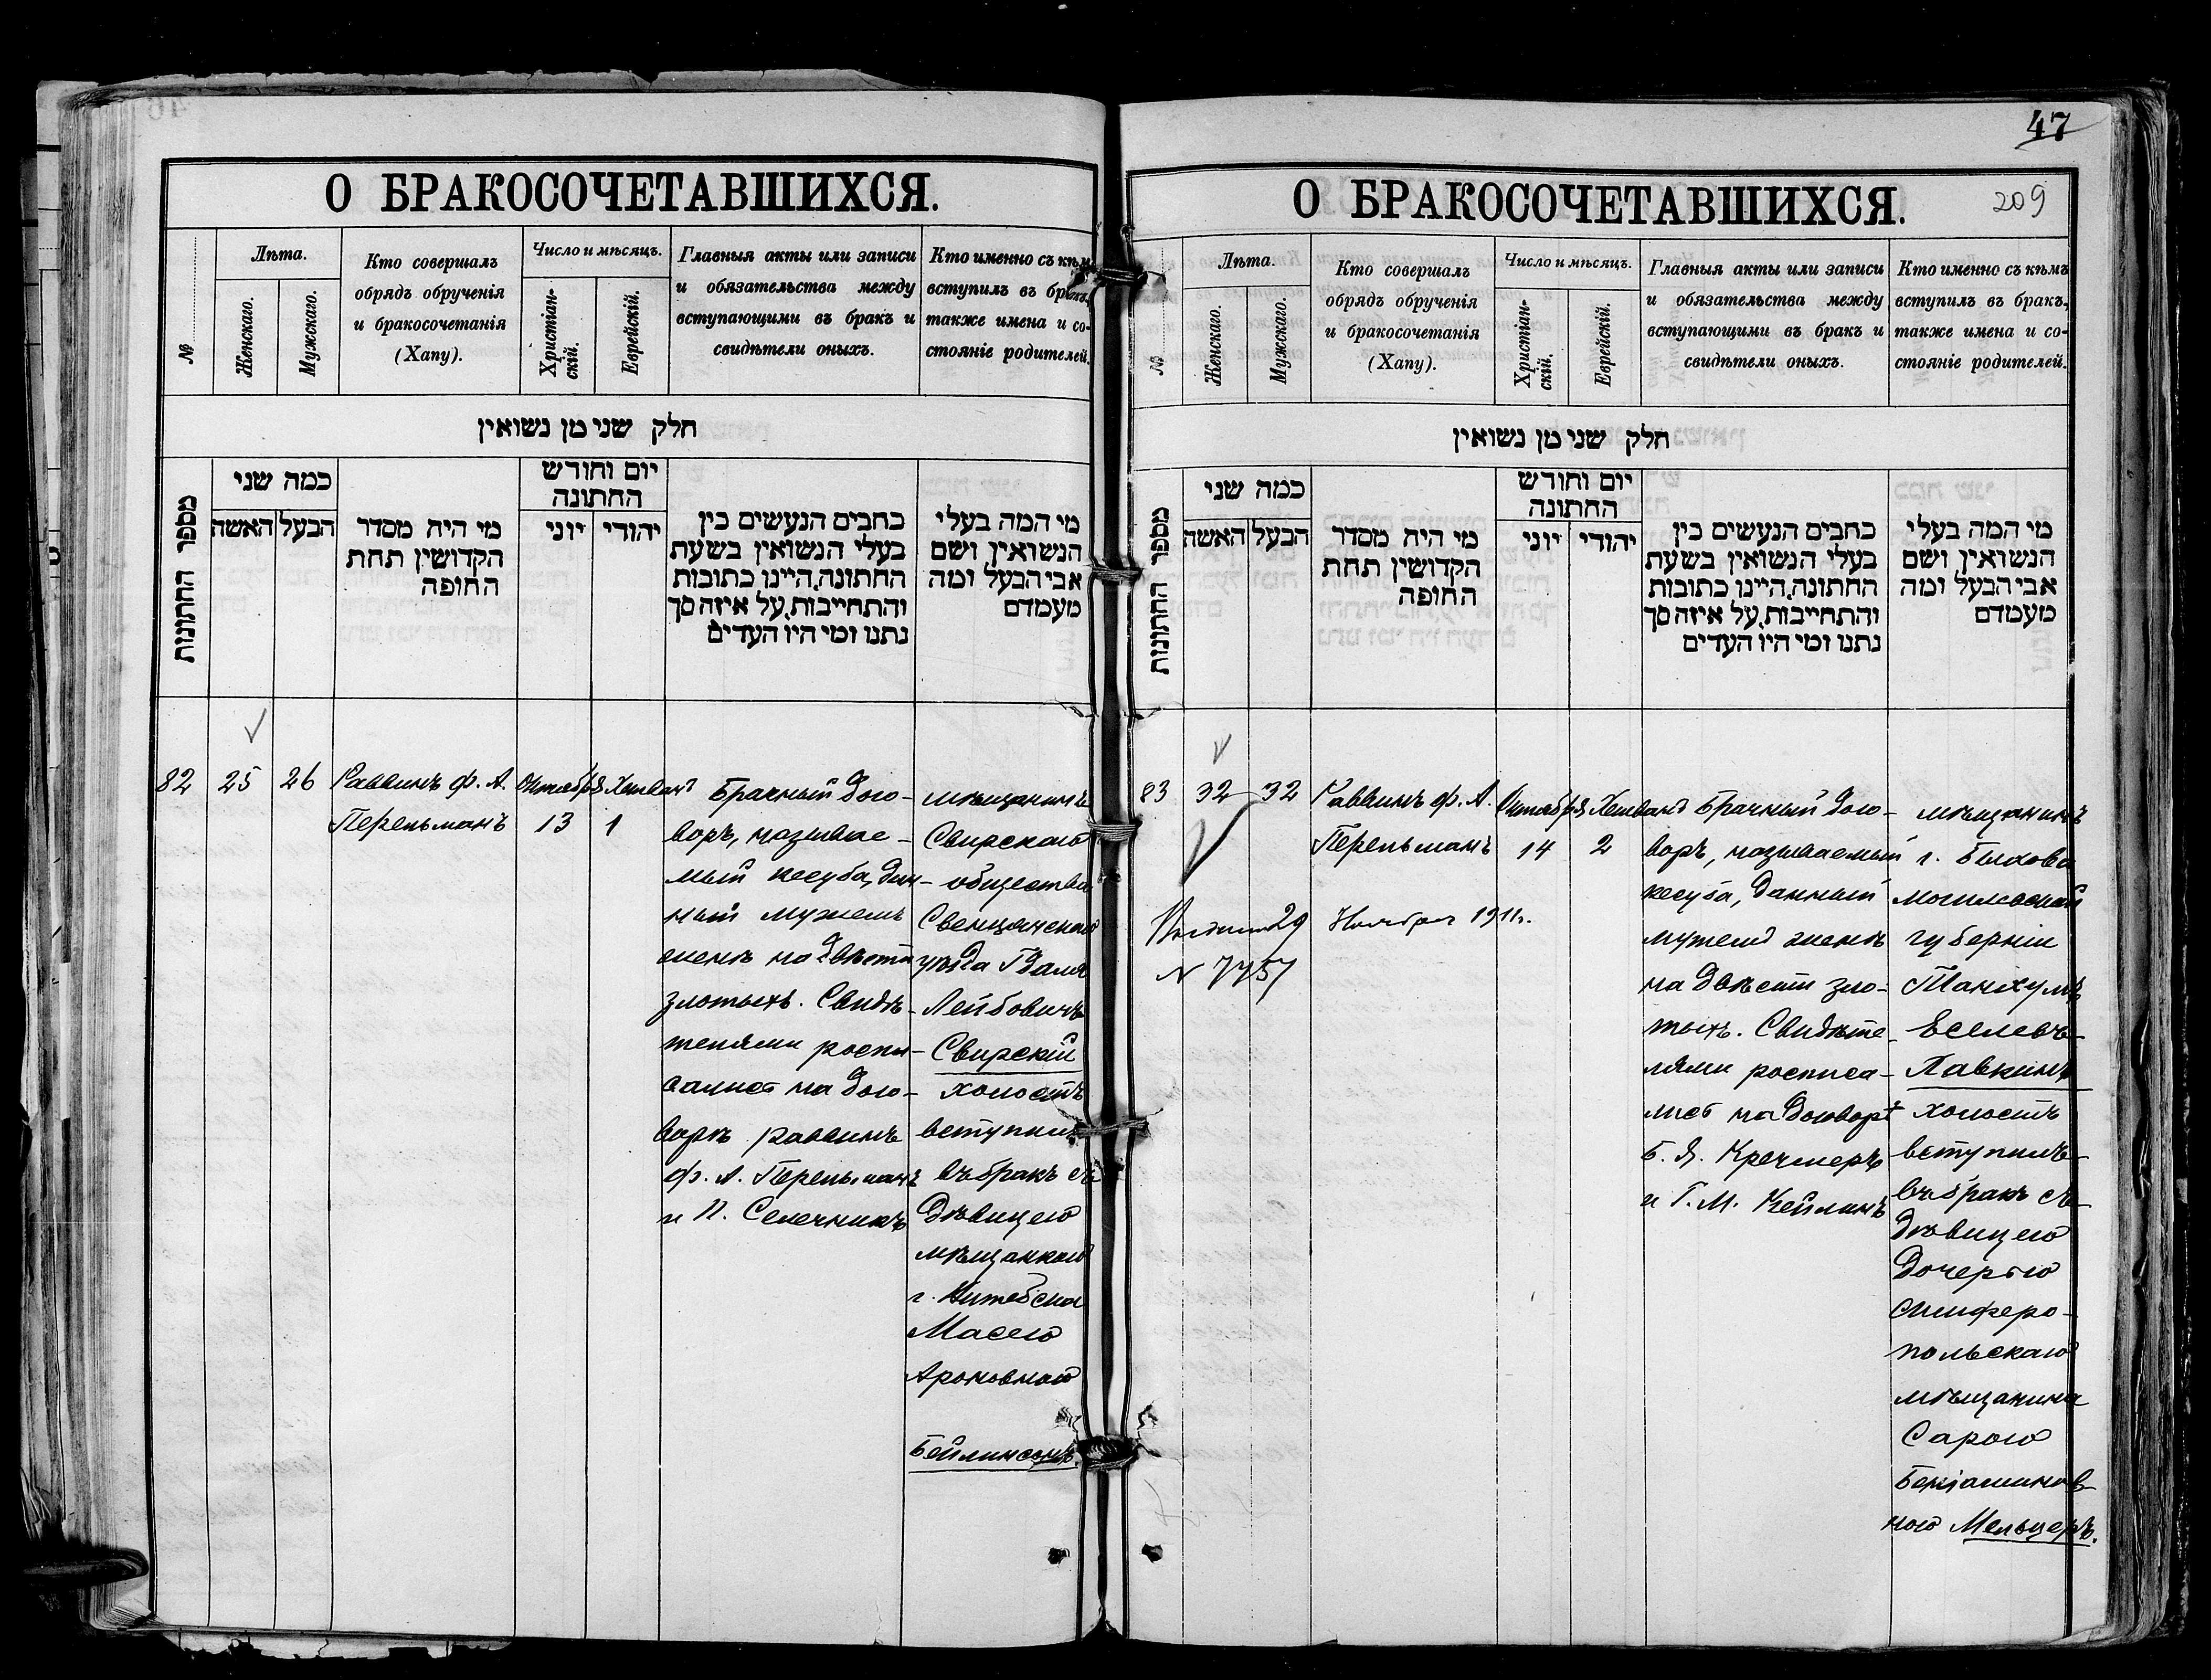 О БРАКОСОЧЕТАВШИХСЯ.
№
Лѣта.
Женскаго.
Мужскаго.
Кто совершалъ
обрядъ обрученія
и бракосочетанія
(Хапу).
Число и мѣсяцъ.
Христіан-
скій.
Еврейскій.
Главныя акты или записи
и обязательства между
вступающими въ бракъ и
свидѣтели оныхъ.
Кто именно съ кѣмъ
вступилъ въ бракъ,
также имена и со-
стояніе родителей.
חלק שני מן נשואין
מספר החתונות
כמה שני
האשה
הבעל
מי היה מסדר
הקדושין תחת
החופה
יום וחודש
החתונה
יוני
יהודי
כתבים הנעשים בין
בעלי הנשואין בשעת
החתונה, היינו כתובות
והתחייבות, על איזה סך
נתנו ומי היו העדים
מי המה בעלי
הנשואין ושם
אבי הבעל ומה
מעמדם
82
25
26
Раввинъ Ф. А.
Перельманъ
Октября
13
Хешванъ
1
Брачный дого-
воръ, называе-
мый кесуба, дан-
ный мужемъ
женѣ на двѣсти
злотыхъ. Свидѣ-
телями роспи-
сались на дого-
ворѣ раввинъ
Ф. А. Перельманъ
и П. Селечникъ
мѣщанинъ
Свирскаго
общества
Свенцянскаго
уѣзда Гдаля
Лейбовичъ
Свирскій
холостъ
вступилъ
въ бракъ съ
дѣвицею
мѣщанкою
г. Витебска
Масею
Ароновною
Бейлинсонъ.
47
209
О БРАКОСОЧЕТАВШИХСЯ.
№
Лѣта.
Женскаго.
Мужскаго.
Кто совершалъ
обрядъ обрученія
и бракосочетанія
(Хапу).
Число и мѣсяцъ.
Христіан-
скій.
Еврейскій.
Главныя акты или записи
и обязательства между
вступающими въ бракъ и
свидѣтели оныхъ.
Кто именно съ кѣмъ
вступилъ въ бракъ,
также имена и со-
стояніе родителей.
חלק שני מן נשואין
מספר החתונות
כמה שני
האשה
הבעל
מי היה מסדר
הקדושין תחת
החופה
יום וחודש
החתונה
יוני
יהודי
כתבים הנעשים בין
בעלי הנשואין בשעת
החתונה, היינו כתובות
והתחייבות, על איזה סך
נתנו ומי היו העדים
מי המה בעלי
הנשואין ושם
אבי הבעל ומה
מעמדם
83
32
32
Раввинъ Ф. А.
Перельманъ
Октября
14
Хешванъ
2
29 Ноября 1911г.
N 7757
Брачный дого-
воръ, называемый
кесуба, данный
мужемъ женѣ
на двѣсти зло-
тыхъ. Свидѣте-
лями росписа-
лись на договорѣ
Б. Я. Кречмеръ
и Г. М. Кейлинъ
мѣщанинъ
г. Быхова
Могилевской
губерніи
Танхумъ
Еселевъ
Хавкинъ
холостъ
вступилъ
въ бракъ съ
дѣвицею
дочерью
симферо-
польскаго
мѣщанина
Сарою
Беніаминов-
ною Мельцеръ.